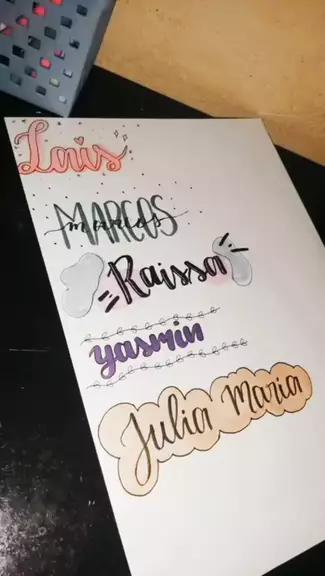 Laís
MARCOS
marcos
Raissa
yasmin
Julia Maria